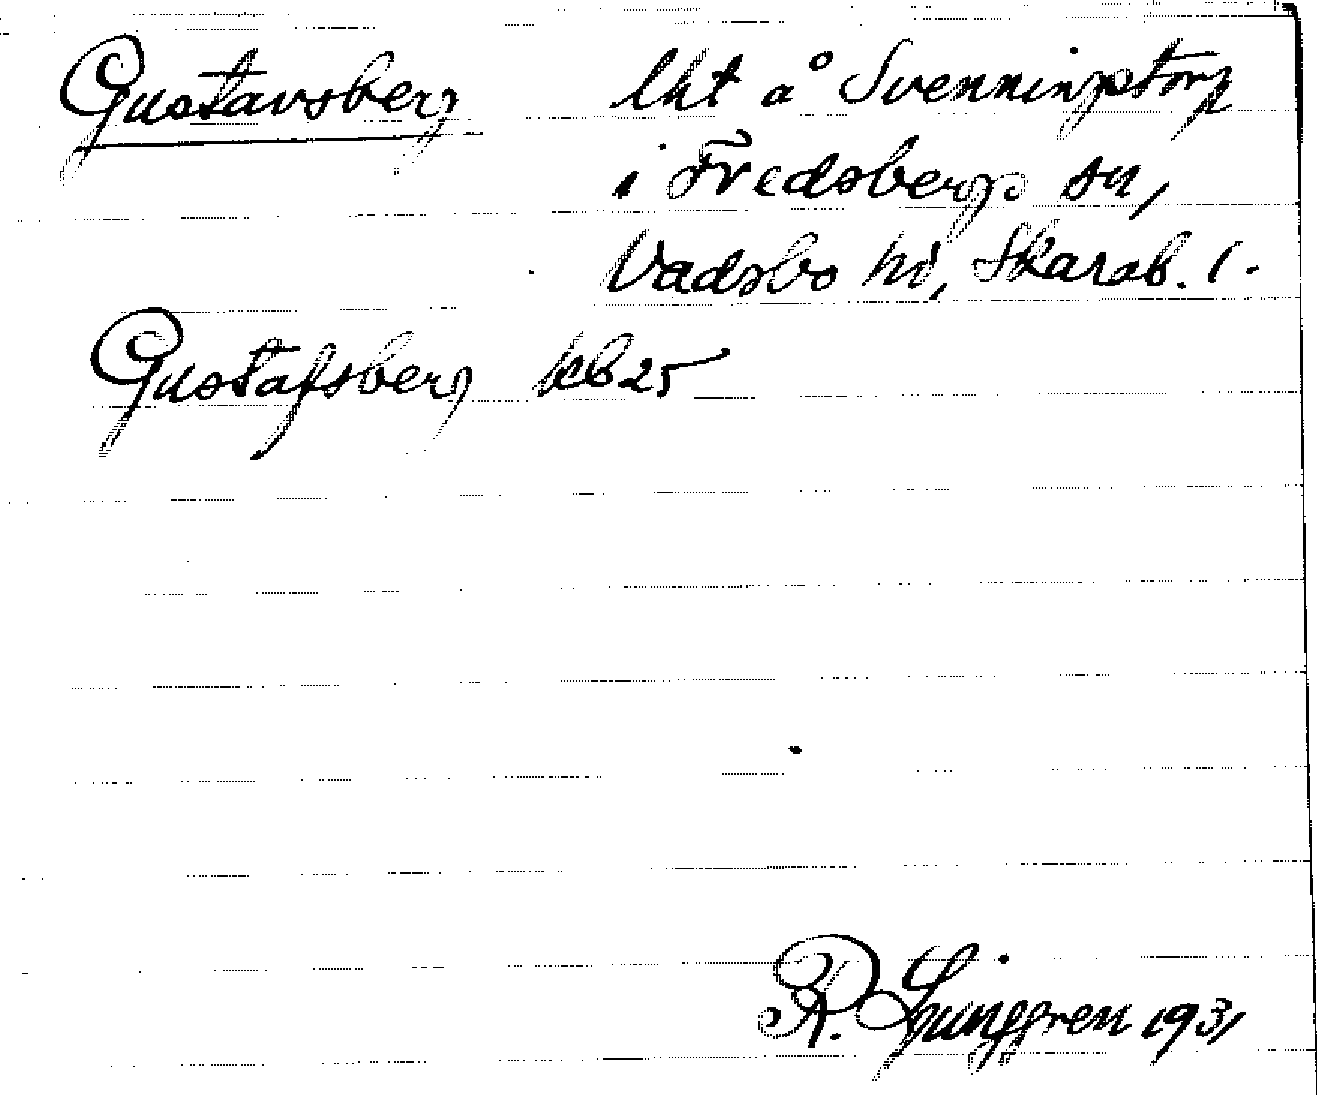 Gustavsberg lht å Svenningstorp
i Fredsbergs sn,
Vadsbo hd, Skarab. l.
Gustafsberg kb 25
R. Ljunggren 1931